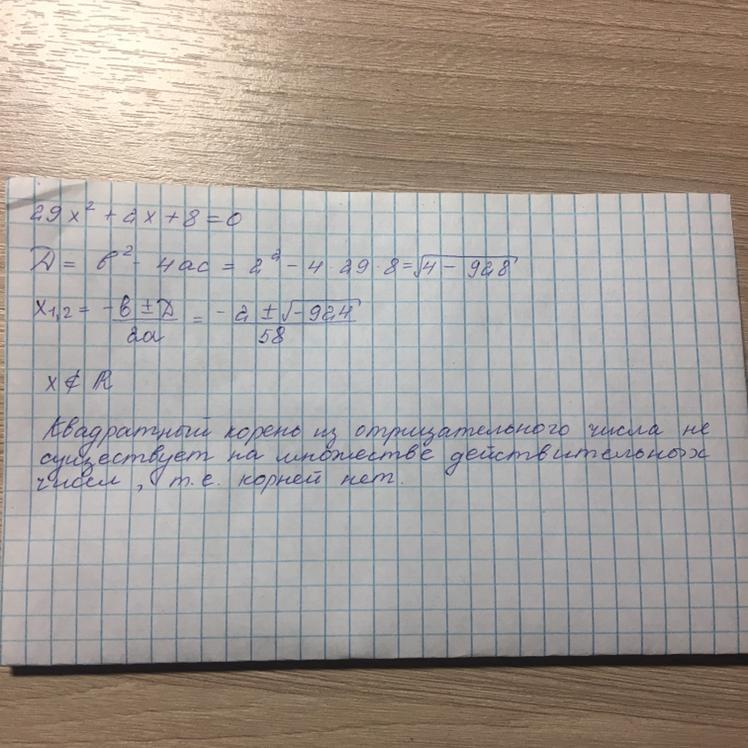 29x² + 2x + 8 = 0
D = b² - 4ac = 2² - 4 · 29 · 8 = √4 - 928
x₁,₂ = -b ± D / 2a = -2 ± √-924 / 58
x ∉ R
Квадратный корень из отрицательного числа не
существует на множестве действительных
чисел, т.е. корней нет.